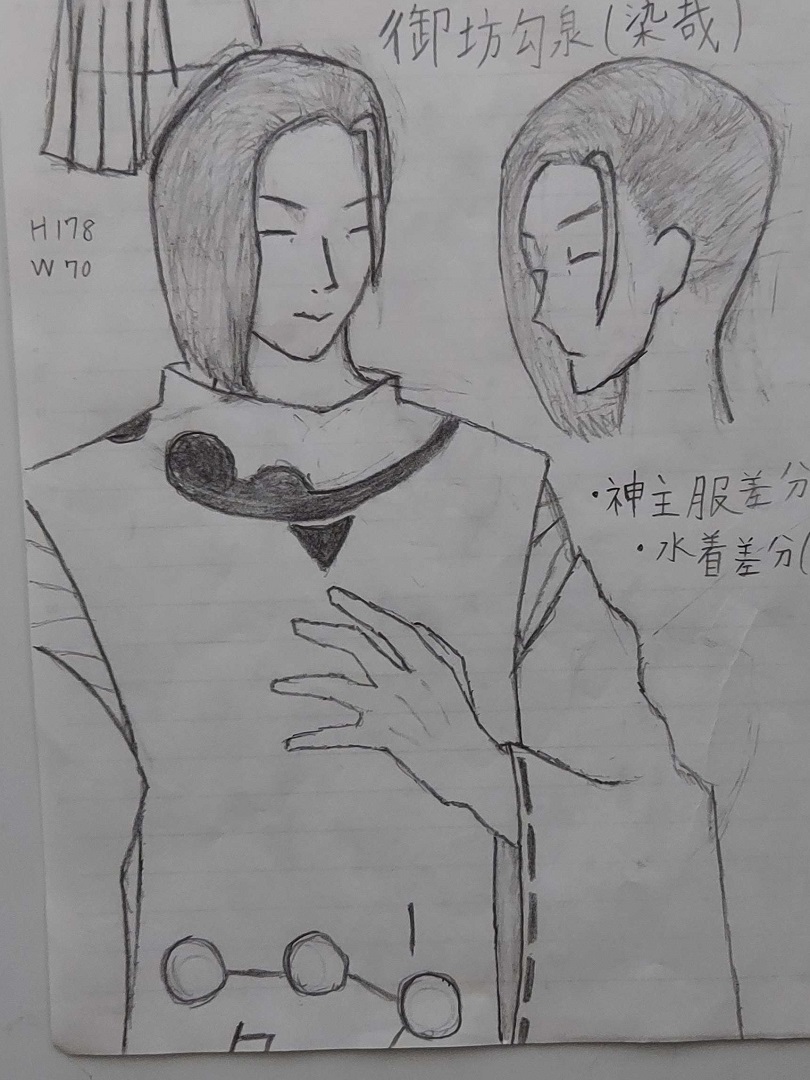 御坊勾泉(染哉)
H178
W70
・神主服差分
・水着差分(